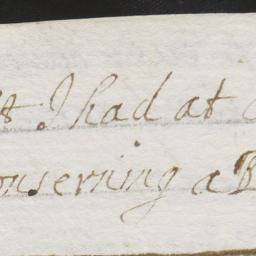 I had at
onserning a B